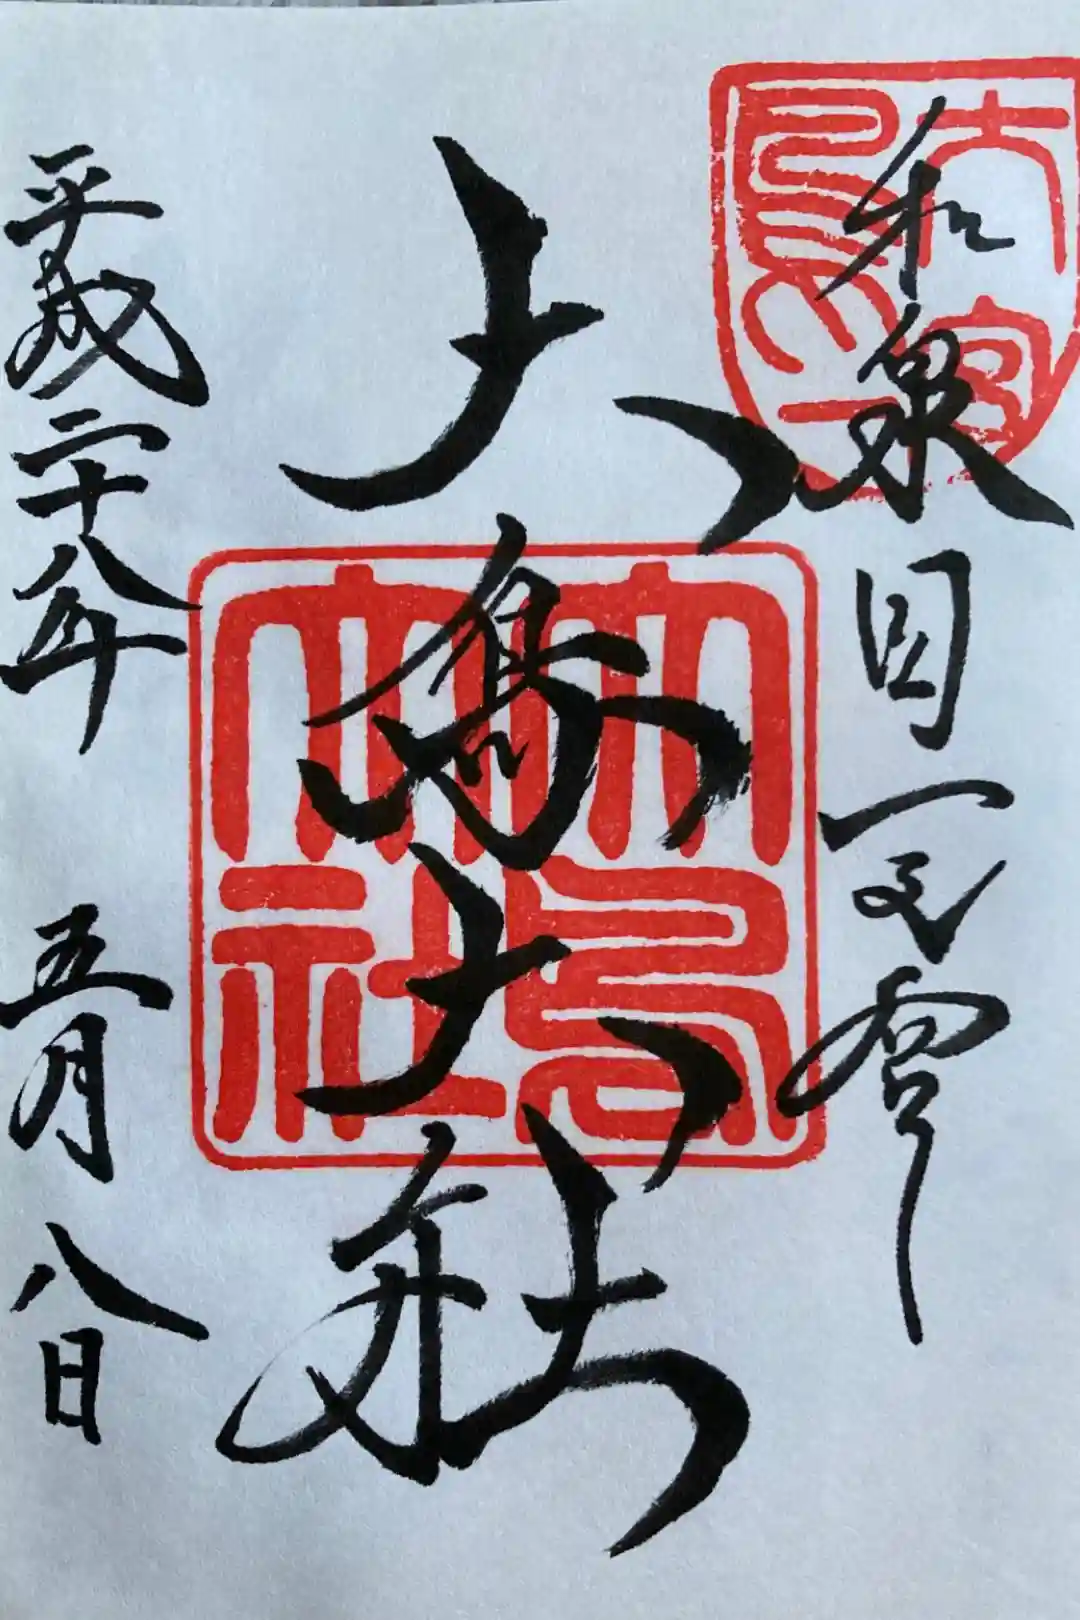 和泉国一之宮
大鳥大社
平成二十八年 五月八日
大鳥
大社